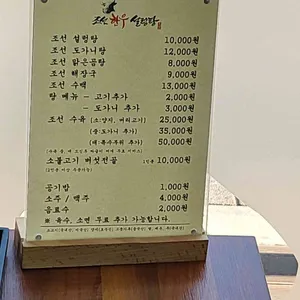 조선 한우 설렁탕
조선 설렁탕 10,000원
조선 도가니탕 12,000원
조선 맑은곰탕 8,000원
조선 해장국 9,000원
조선 수백 13,000원
탕 메뉴 - 고기추가 2,000원
- 도가니 추가 3,000원
조선 수육 (소:양지, 머리고기) 25,000원
(중:도가니 추가) 35,000원
(대:특수부위 추가) 50,000원
소불고기 버섯전골 1인분 10,000원
공기밥 1,000원
소주 / 맥주 4,000원
음료수 2,000원
※ 육수, 소면 무료 추가 가능합니다.